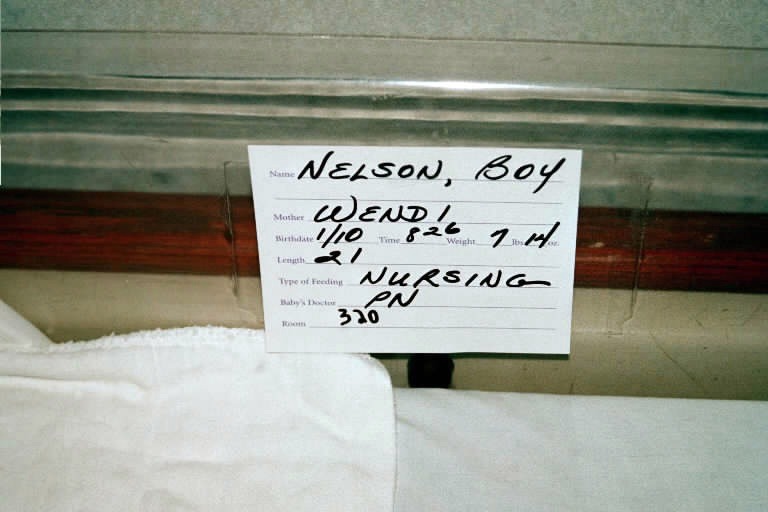 Name NELSON, BOY
Mother WENDI
Birthdate 1/10 Time 826 Weight 7 lbs 14 oz.
Length 21
Type of Feeding NURSING
Baby's Doctor PN
Room 320